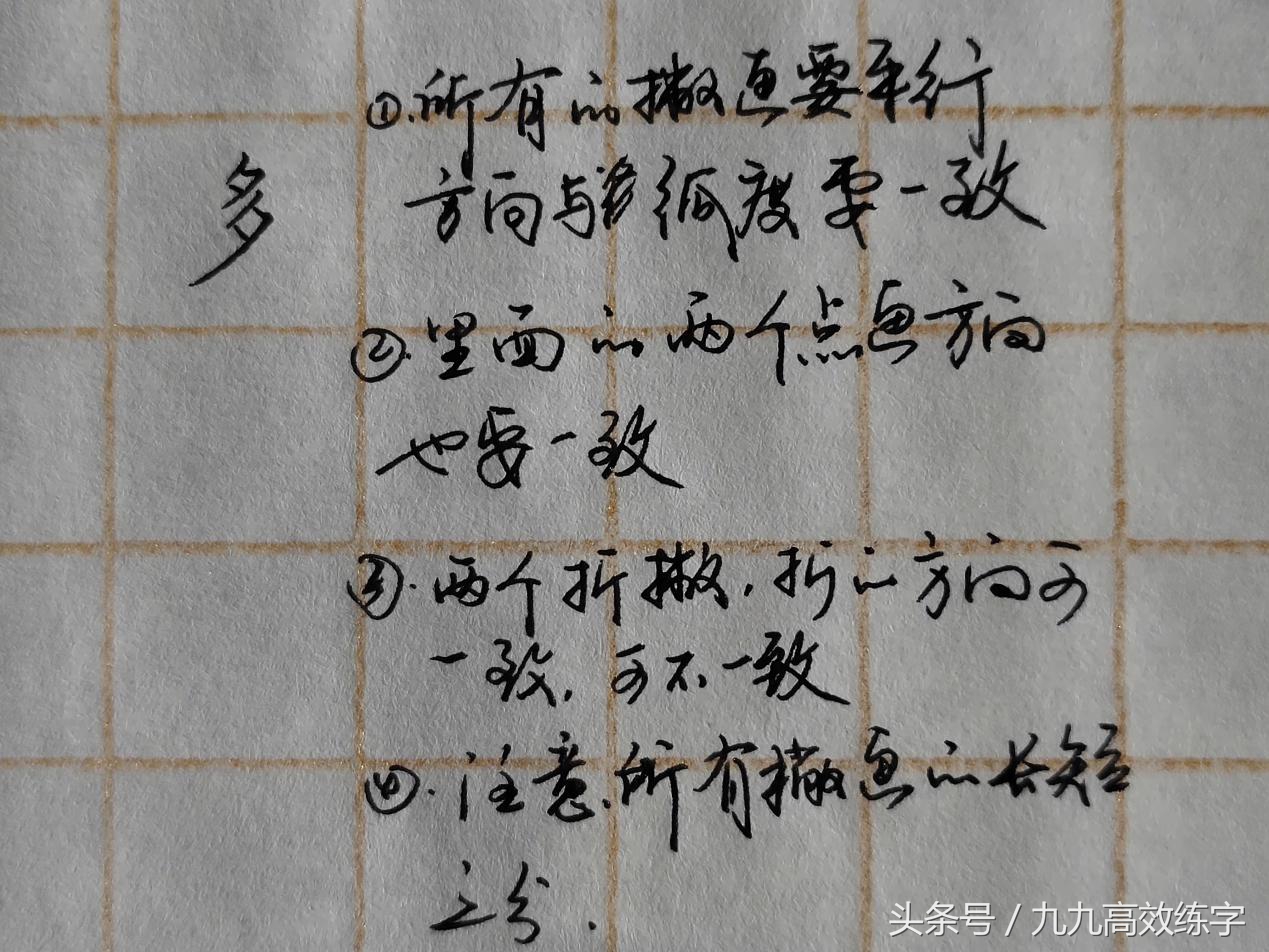 多
①.所有的撇画要平行
方向与弧度要一致
②.里面的两个点画方向
也要一致
③.两个折撇,折的方向可
一致,可不一致
④.注意,所有撇画的长短
之分.
头条号/九九高效练字